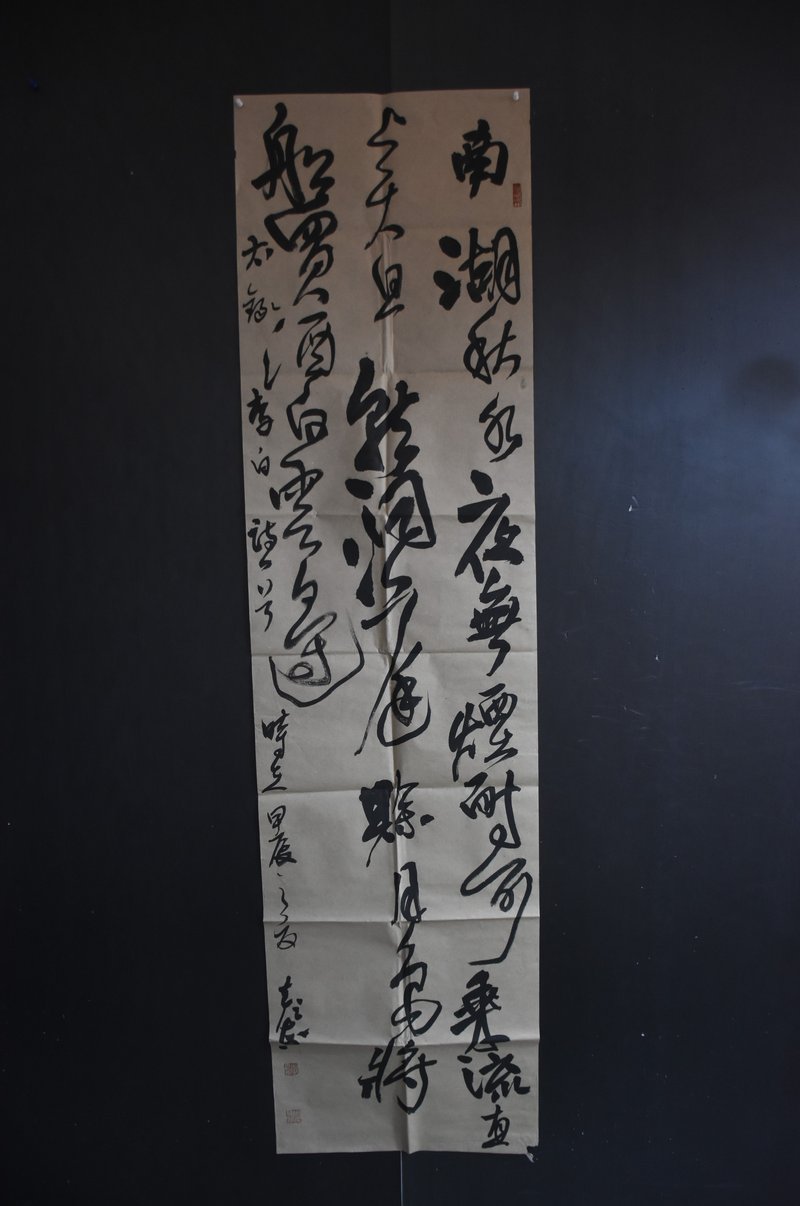 南湖秋水夜無煙耐可乘流直
上天且就洞洞庭賒月色將
船買酒白雲邊
右錄李白詩一首 時在甲辰之夏